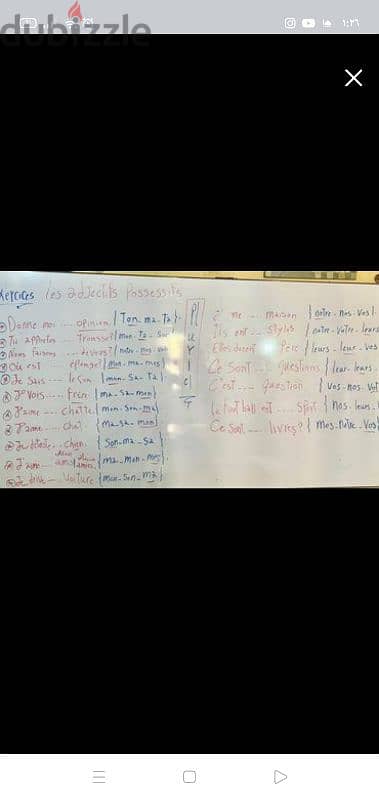 dubizzle
١:٢٦
les adjectifs Possessifs
Donne moi .... opinion { Ton - ma - Ta }
Tu apportes ... Trousse? { mon - Ta - Sa
Nous faisons .... devoirs? { notre - mos - vot
Où est .... éponge? { mon - ma - mes }
Je Sais .... leçon { mon - Sa - Ta }
Je Vois .... Frère { ma - Sa - mon }
J'aime .... chatte { mon - Son - ma }
J'aime .... chat { ma - Sa - mon }
Je déteste ... chien { Son - ma - Sa }
J'aime ... amie { ma - mon - mes }
Je ... Voiture { mon - Son - ma }
Pluriel
... maison { notre - nos - Vos }
Ils ont ... Stylos { notre - Votre - leurs
Elles ... Père { leurs - leur - Ves
Ce Sont .... questions { leur - leurs
C'est .... question { Vos - nos - Vot
Le football est .... Sport { Nos - leurs
Ce Sont .... livres? { Mes - Notre - Vos }